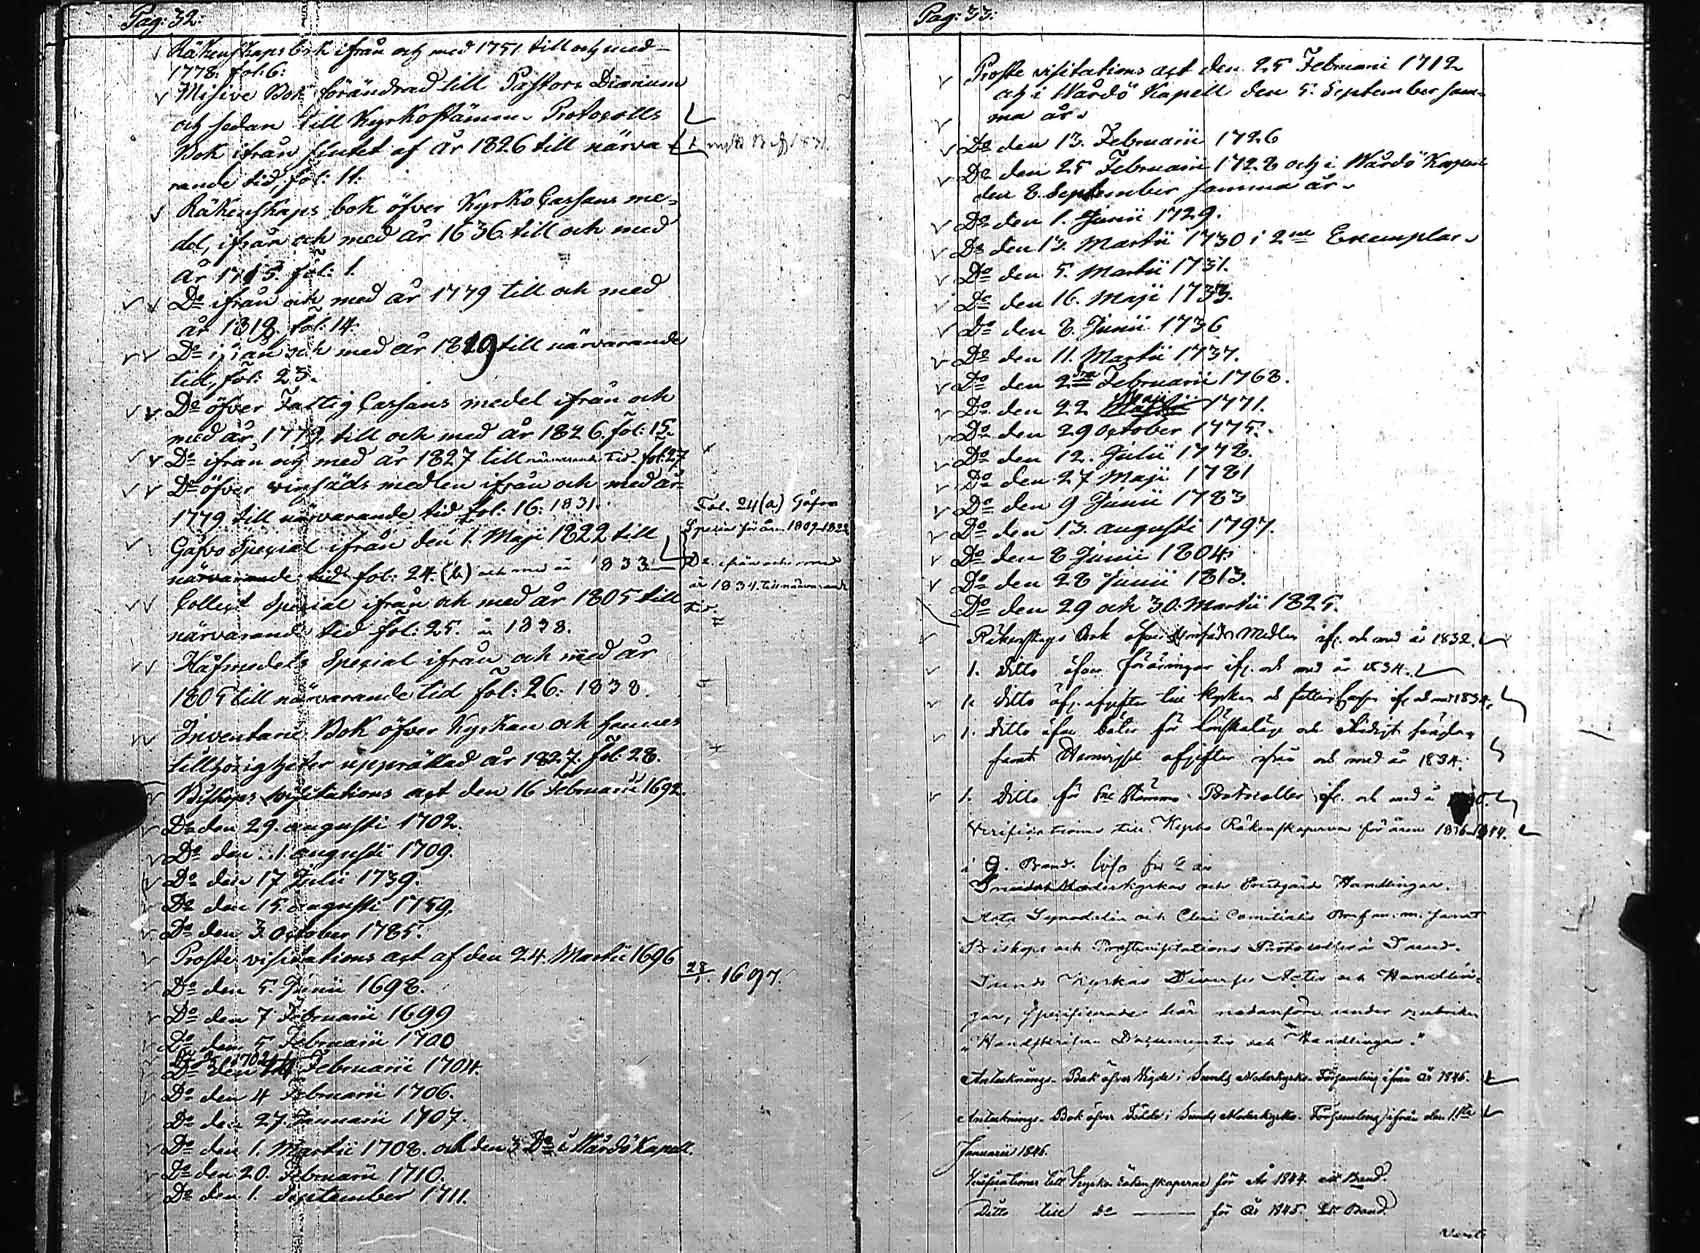 Pag: 32:
Räkenskaps bok ifrån och med 1751 till och med
1778. fol: 6:
Missive Bok förändrad till Pastors Diarium
och sedan till Kyrkostämmo Protocolls
Bok ifrån slutet af år 1826 till närva-
rande tid, fol: 11.
Räkenskaps bok öfver Kyrko Cassans me-
del, ifrån och med år 1636 till och med
år 1715. fol: 1.
Do ifrån och med år 1779 till och med
år 1818. fol: 14.
Do ifrån och med år 1819 till närvarande
tid, fol: 23.
Do öfver Fattig Cassans medel ifrån och
med år 1779, till och med år 1826, fol: 15.
Do ifrån och med år 1827 till närvarande tid fol: 27
Do öfver vinsäds medlen ifrån och med år
1779 till närvarande tid fol: 16: 1831.
Gåfvo Special ifrån den 1. Maji 1822 till
närvarande tid fol: 24. (b) och med år 1833
Fol. 24 (a) Gåfvo
Special för åren 1809-1822
Do ifrån och med
år 1834 till närvarande
tid.
Collect Special ifrån och med år 1805 till
närvarande tid fol: 25. å 1838.
Håfmedels Special ifrån och med år
1805 till närvarande tid fol: 26: 1838.
Inventarii Bok öfver Kyrkan och hennes
tillhörigheter upprättad år 1827. fol: 28.
Biskops visitations act den 16 Februarii 1692.
Do den 29. augusti 1702.
Do den 1. augusti 1709.
Do den 17 Julii 1739.
Do den 15. augusti 1759.
Do den 3. October 1785.
Proste visitations act af den 24. Martii 1696
28/1. 1697.
Do den 5. Junii 1698.
Do den 7 Februarii 1699
Do den 5 Februarii 1700
Do den Februarii 1704.
Do den 4 Februarii 1706.
Do den 27 Januarii 1707.
Do den 1. Martii 1708. och den 3 Do i Wårdö Kapell.
Do den 20. Februarii 1710.
Do den 1. September 1711.
Pag: 33:
Proste visitations act den 25 Februarii 1712
och i Wårdö Kapell den 5. September sam-
ma år.
Do den 13. Februarii 1726
Do den 25 Februarii 1728 och i Wårdö Kapell
den 8. September samma år.
Do den 1. Junii 1729.
Do den 13. Martii 1730 i 2ne Exemplar.
Do den 5. Martii 1731.
Do den 16. Maji 1733.
Do den 8. Junii 1736
Do den 11. Martii 1737.
Do den 2dra Februarii 1768.
Do den 22 Maji 1771.
Do den 29 October 1775.
Do den 12. Julii 1778.
Do den 27 Maji 1781
Do den 9 Junii 1783
Do den 13. augusti 1797.
Do den 8 Junii 1804.
Do den 28 Junii 1813.
Do den 29 och 30. Martii 1825.
Räkenskaps Bok öfver Vinsäds Medlen ifr. och med år 1832.
1. Ditto öfver Föräringar ifr. och med år 1834.
1. Ditto öfv. afgifter till Kyrkan och fattig Cassan ifr. och med 1834.
1. Ditto öfver
samt afgifter ifrån och med år 1834.
1. Ditto för Stämmo Protocoller ifr. och med å
Verificationer till Kyrko Räkenskaperna för åren
i 9 Band.
Sunds Moderkyrkas och Handlingar.
Acta Synodalia och Cleri Comitialia Bref m. m. samt
Biskops och Prostvisitations Protocoller i Sund.
Sunds Kyrkas Diverse Acter och Handlin-
gar, specificerade här nedanföre under rubriken
"Handskrifne Documenter och Handlingar."
Antecknings-Bok öfver Vigde i Sunds Moderkyrko-Församling ifrån år 1846.
Antecknings-Bok öfver Födde i Sunds Moderkyrko-Församling ifrån den 1sta
Januarii 1846.
Verificationer till Kyrko räkenskaperne för År 1844 ett Band.
Ditto till do för År 1845. Ett Band.